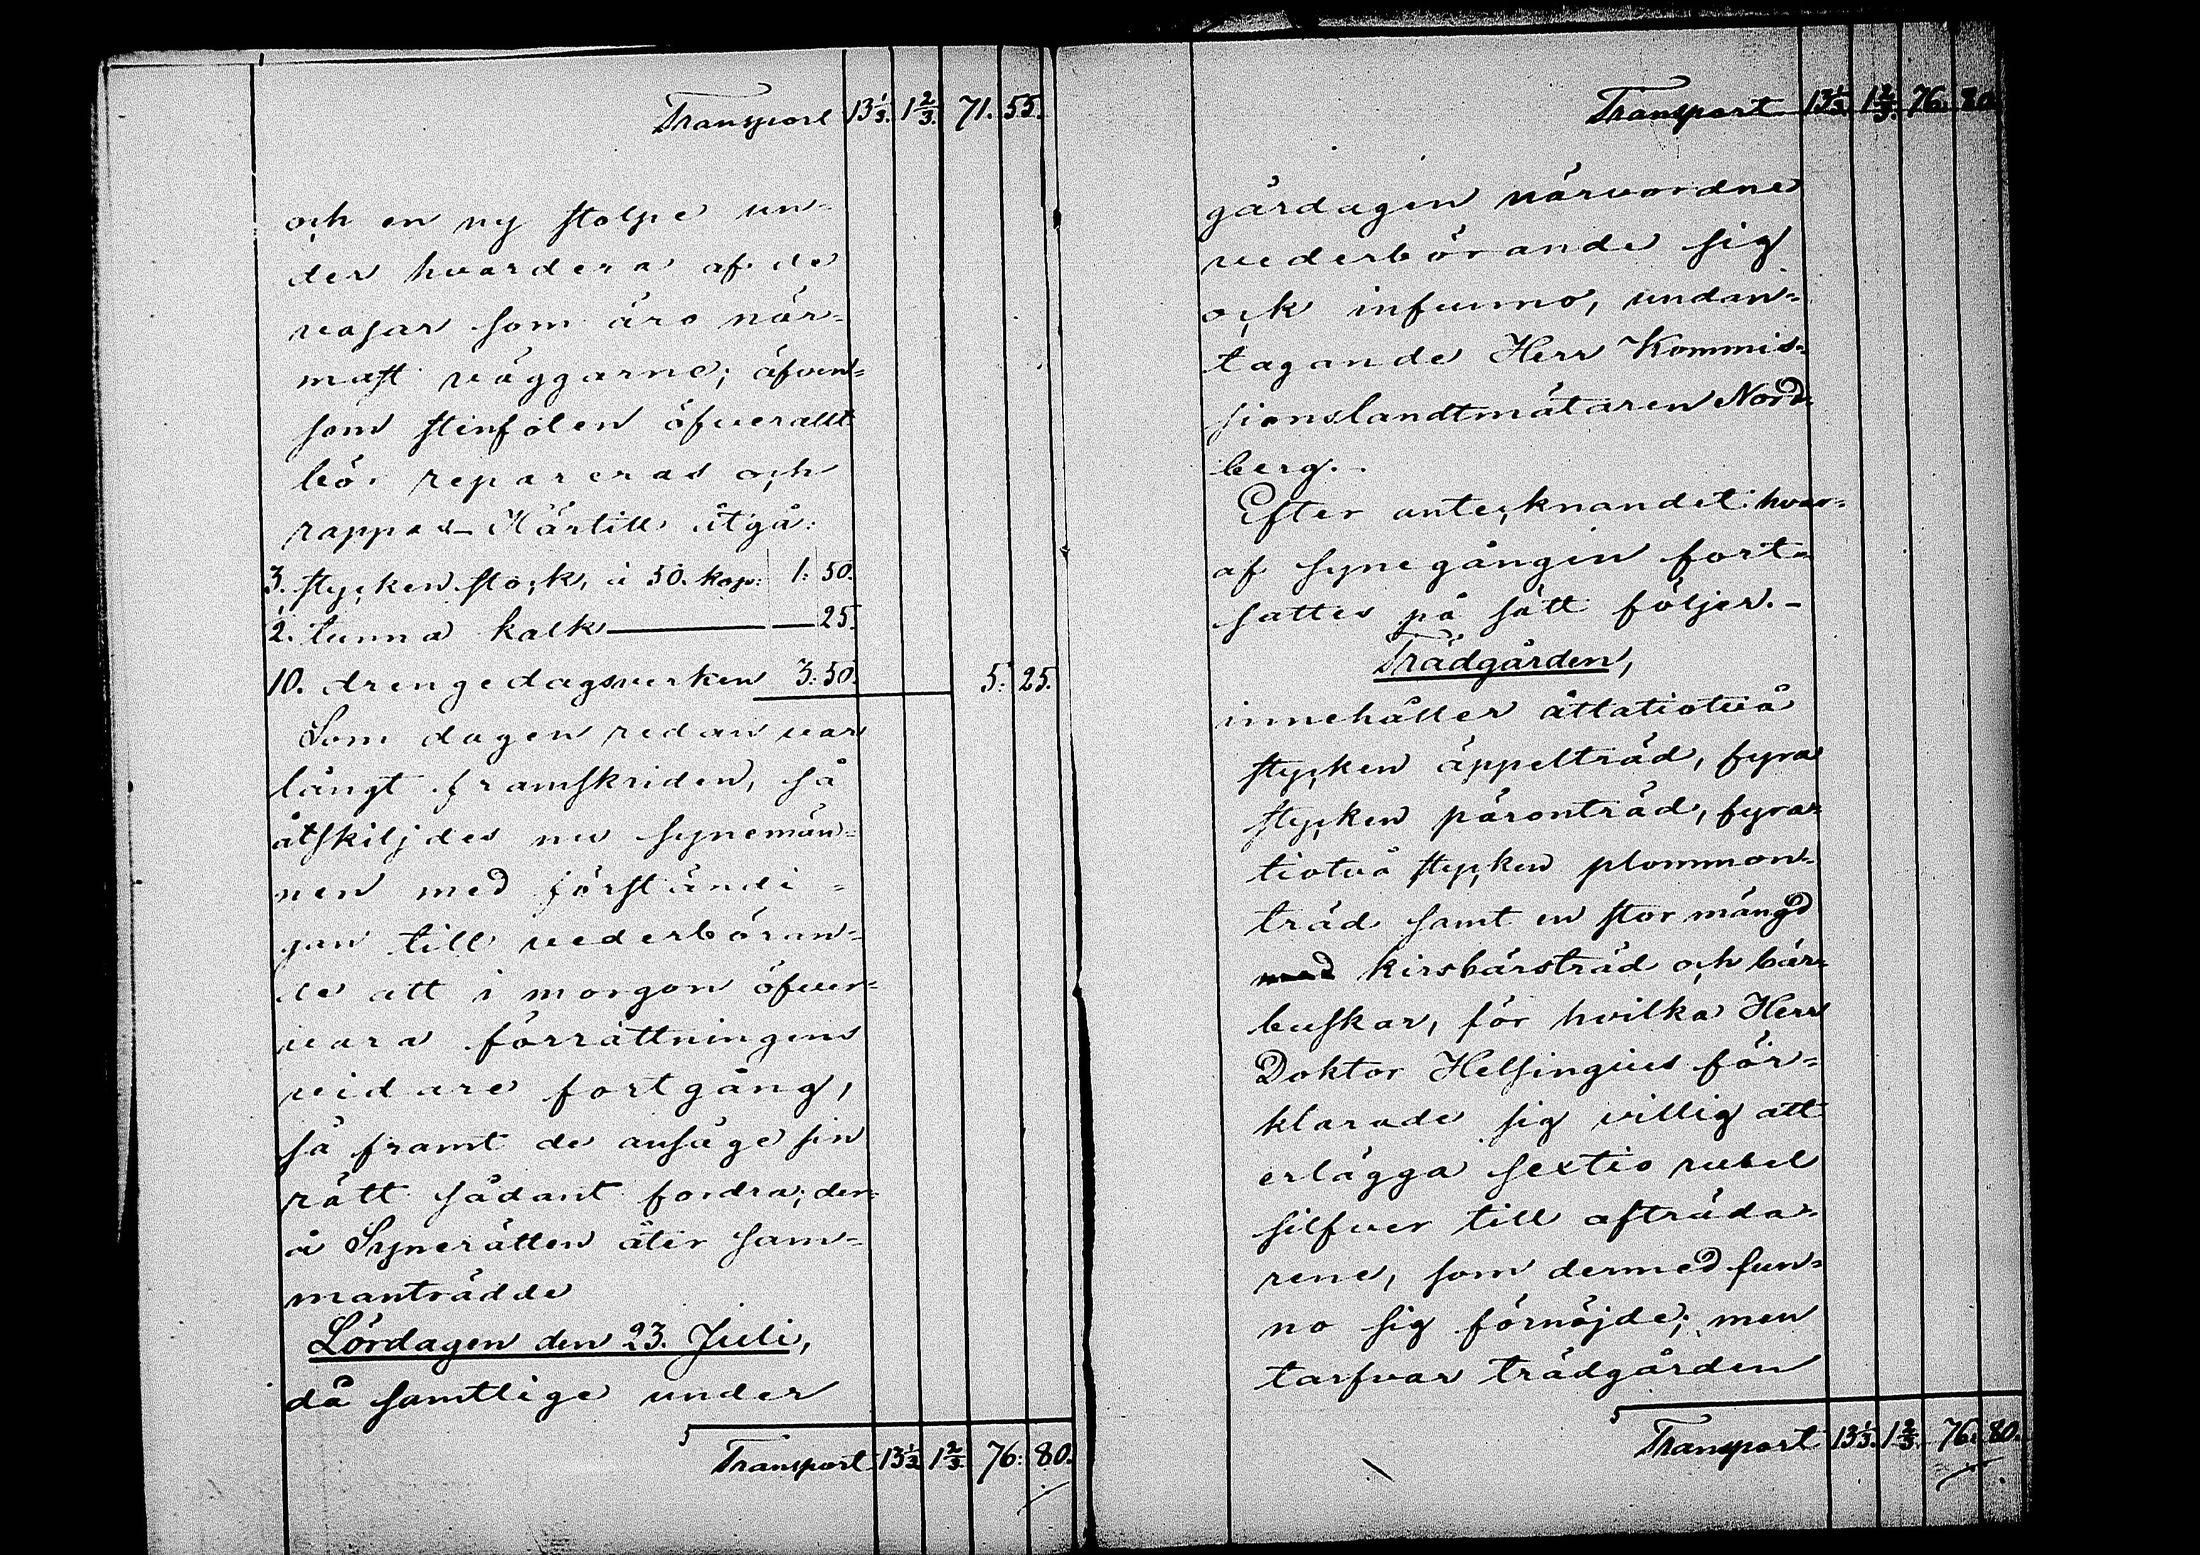 Transport 13 1/3. 1 2/3. 71. 55.
och en ny stolpe un-
der hvardera af de
vasar som äro när-
mast väggarne; äfven-
som stenfolen öfverallt
bör reparerad och
rappad - Härtill åtgå:
3. stycken stock, à 50. kop: 1: 50.
2. tunna kalk — — 25.
10. drengedagsverken 3: 50. 5: 25.
Som dagen redan var
långt framskriden, så
åtskiljdes nu synemän-
nen med förständi-
gan till vederböran-
de att i morgon öfver-
vara förrättningens
vidare fortgång,
så framt de ansåge sin
rätt sådant fordra; der-
å Synerätten åter sam-
manträdde
Lördagen den 23. Juli,
då samtlige under
Transport 13 1/3. 1 2/3. 76: 80.
Transport 13 1/3. 1 2/3. 76. 80.
gårdagen närvordne
vederbörande sig
ock infunno, undan-
tagande Herr Kommis-
sionslandtmätaren Nord-
berg.
Efter antecknandet hvar-
af synegången fort-
sattes på sätt följer. -
Trädgården,
innehåller åttatiotvå
stycken äppelträd, fyra
stycken päronträd, fyra-
tiotvå stycken plommon-
träd samt en stor mängd
med kirsbärsträd och bär-
buskar, för hvilka Herr
Doktor Helsingius för-
klarade sig villig att
erlägga sextio rubel
silfver till afträda-
rene, som dermed fun-
no sig förnöjde; men
tarfvar trädgården
Transport 13 1/3. 1 2/3. 76. 80.